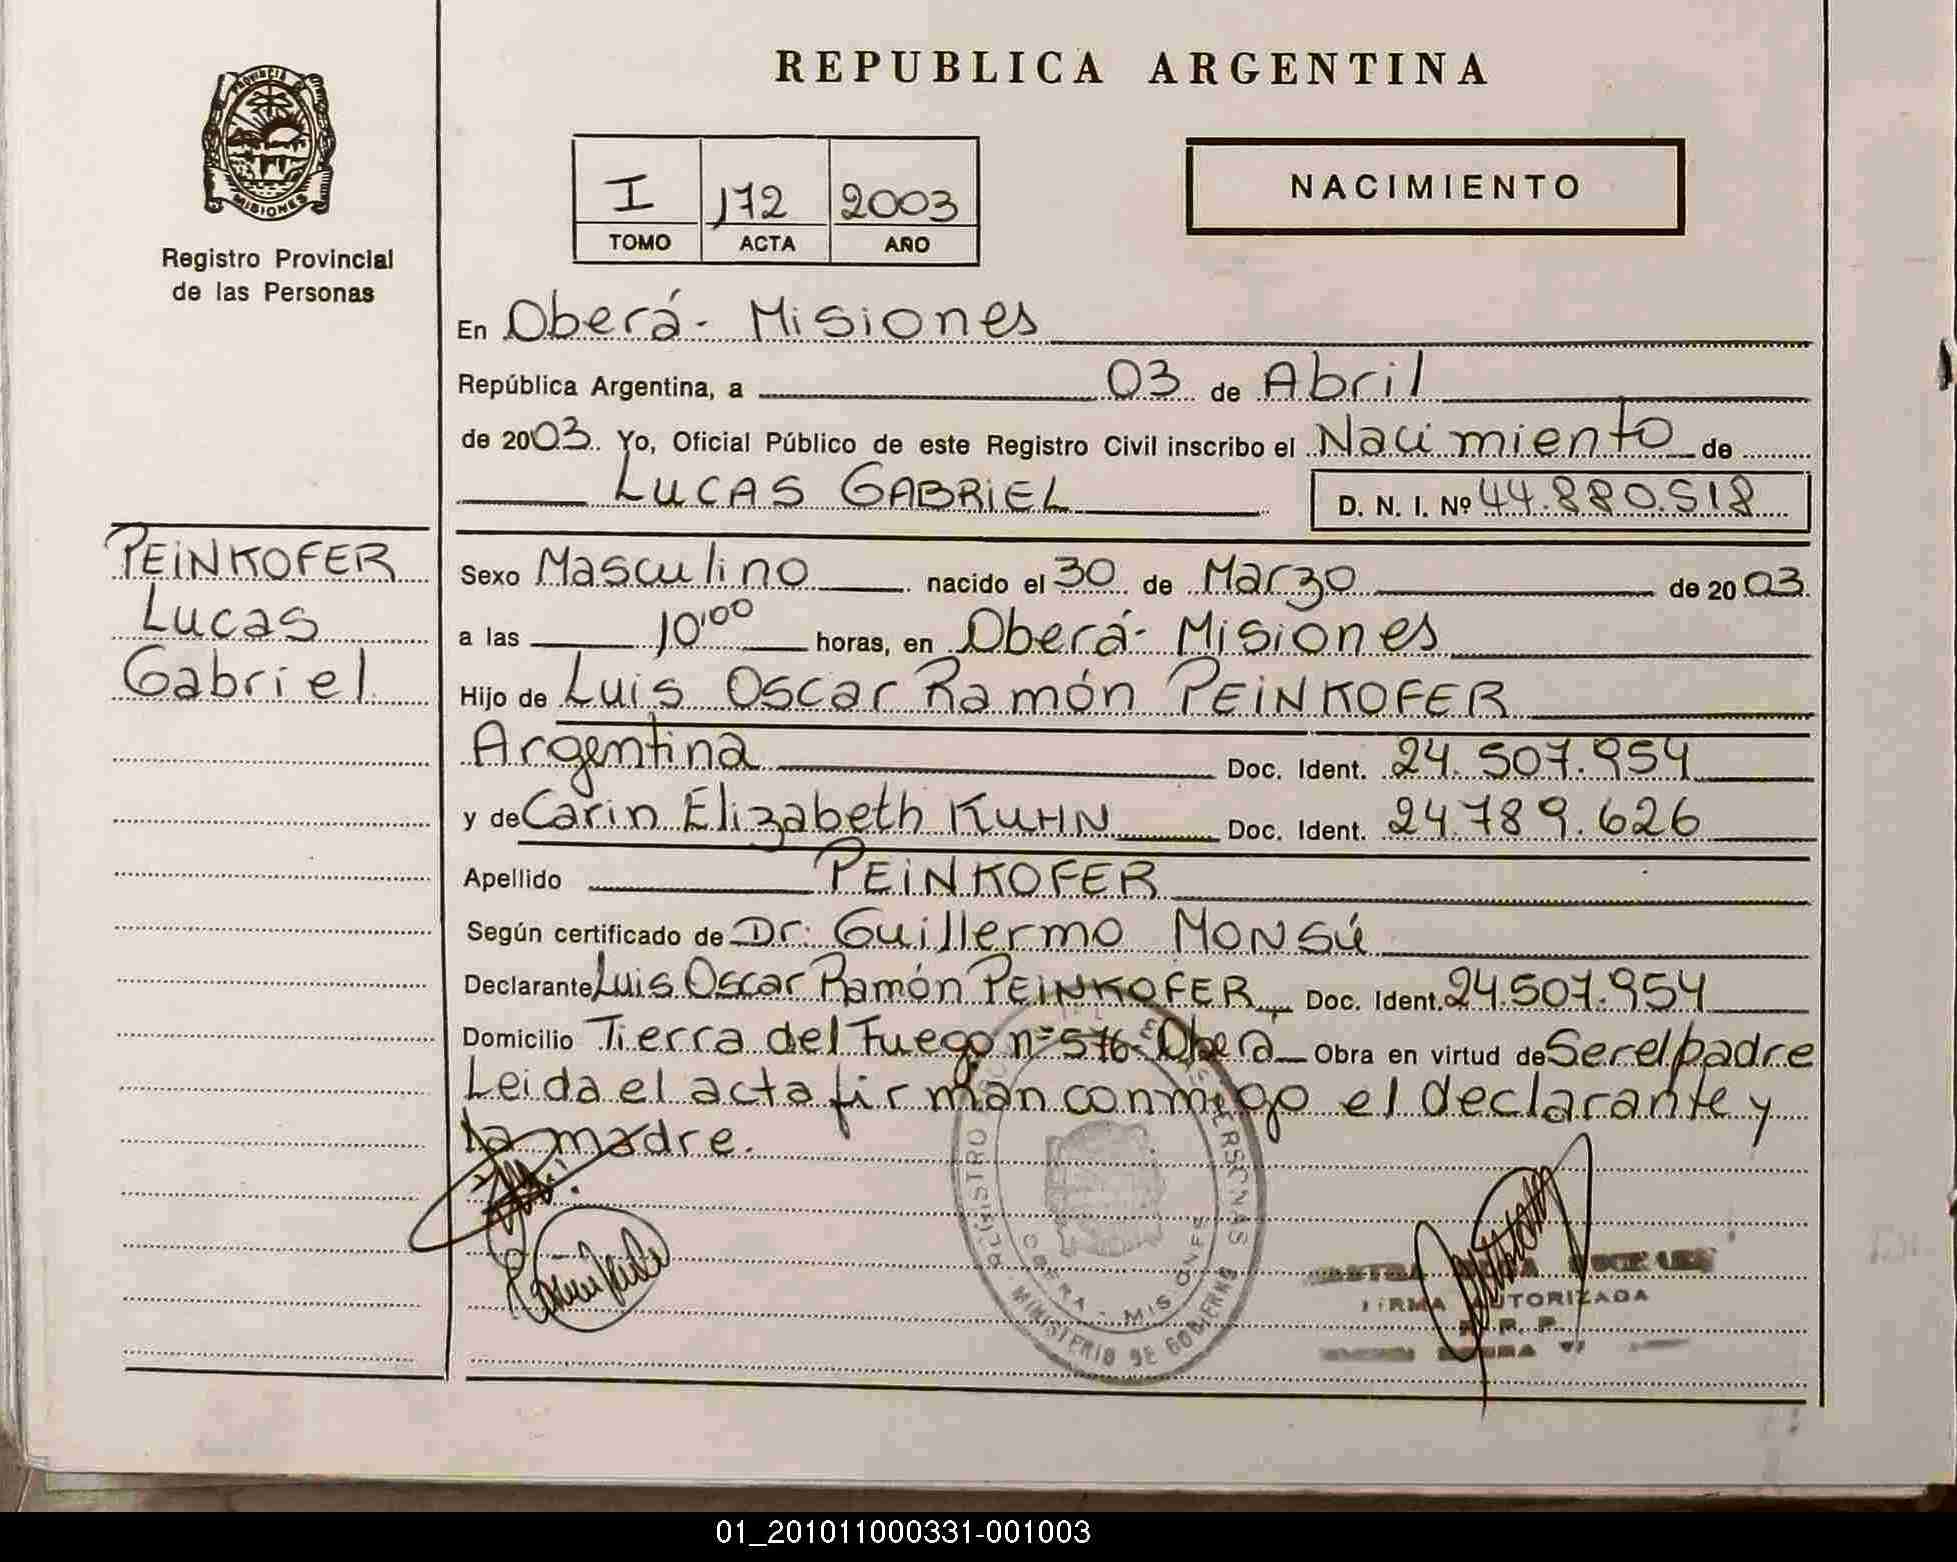 REPUBLICA ARGENTINA
PROVINCIA
MISIONES
Registro Provincial
de las Personas
I 172 2003
TOMO ACTA AÑO
NACIMIENTO
En Oberá- Misiones
República Argentina, a 03 de Abril
de 2003. Yo, Oficial Público de este Registro Civil inscribo el Nacimiento de
LUCAS GABRIEL D. N. I. Nº 44.880.518
PEINKOFER
Lucas
Gabriel
Sexo Masculino nacido el 30 de Marzo de 2003
a las 10'00 horas, en Oberá- Misiones
Hijo de Luis Oscar Ramón PEINKOFER
Argentina Doc. Ident. 24.507.954
y de Carin Elizabeth KUHN Doc. Ident. 24.789.626
Apellido PEINKOFER
Según certificado de Dr. Guillermo MONSÚ
Declarante Luis Oscar Ramón PEINKOFER Doc. Ident. 24.507.954
Domicilio Tierra del Fuego nº 576- Oberá Obra en virtud de Ser el padre
Leida el acta firman conmigo el declarante y
la madre.
REGISTRO PERSONAS
OBERA - MISIONES
MINISTERIO DE GOBIERNO
FIRMA AUTORIZADA
R. P.
01_201011000331-001003